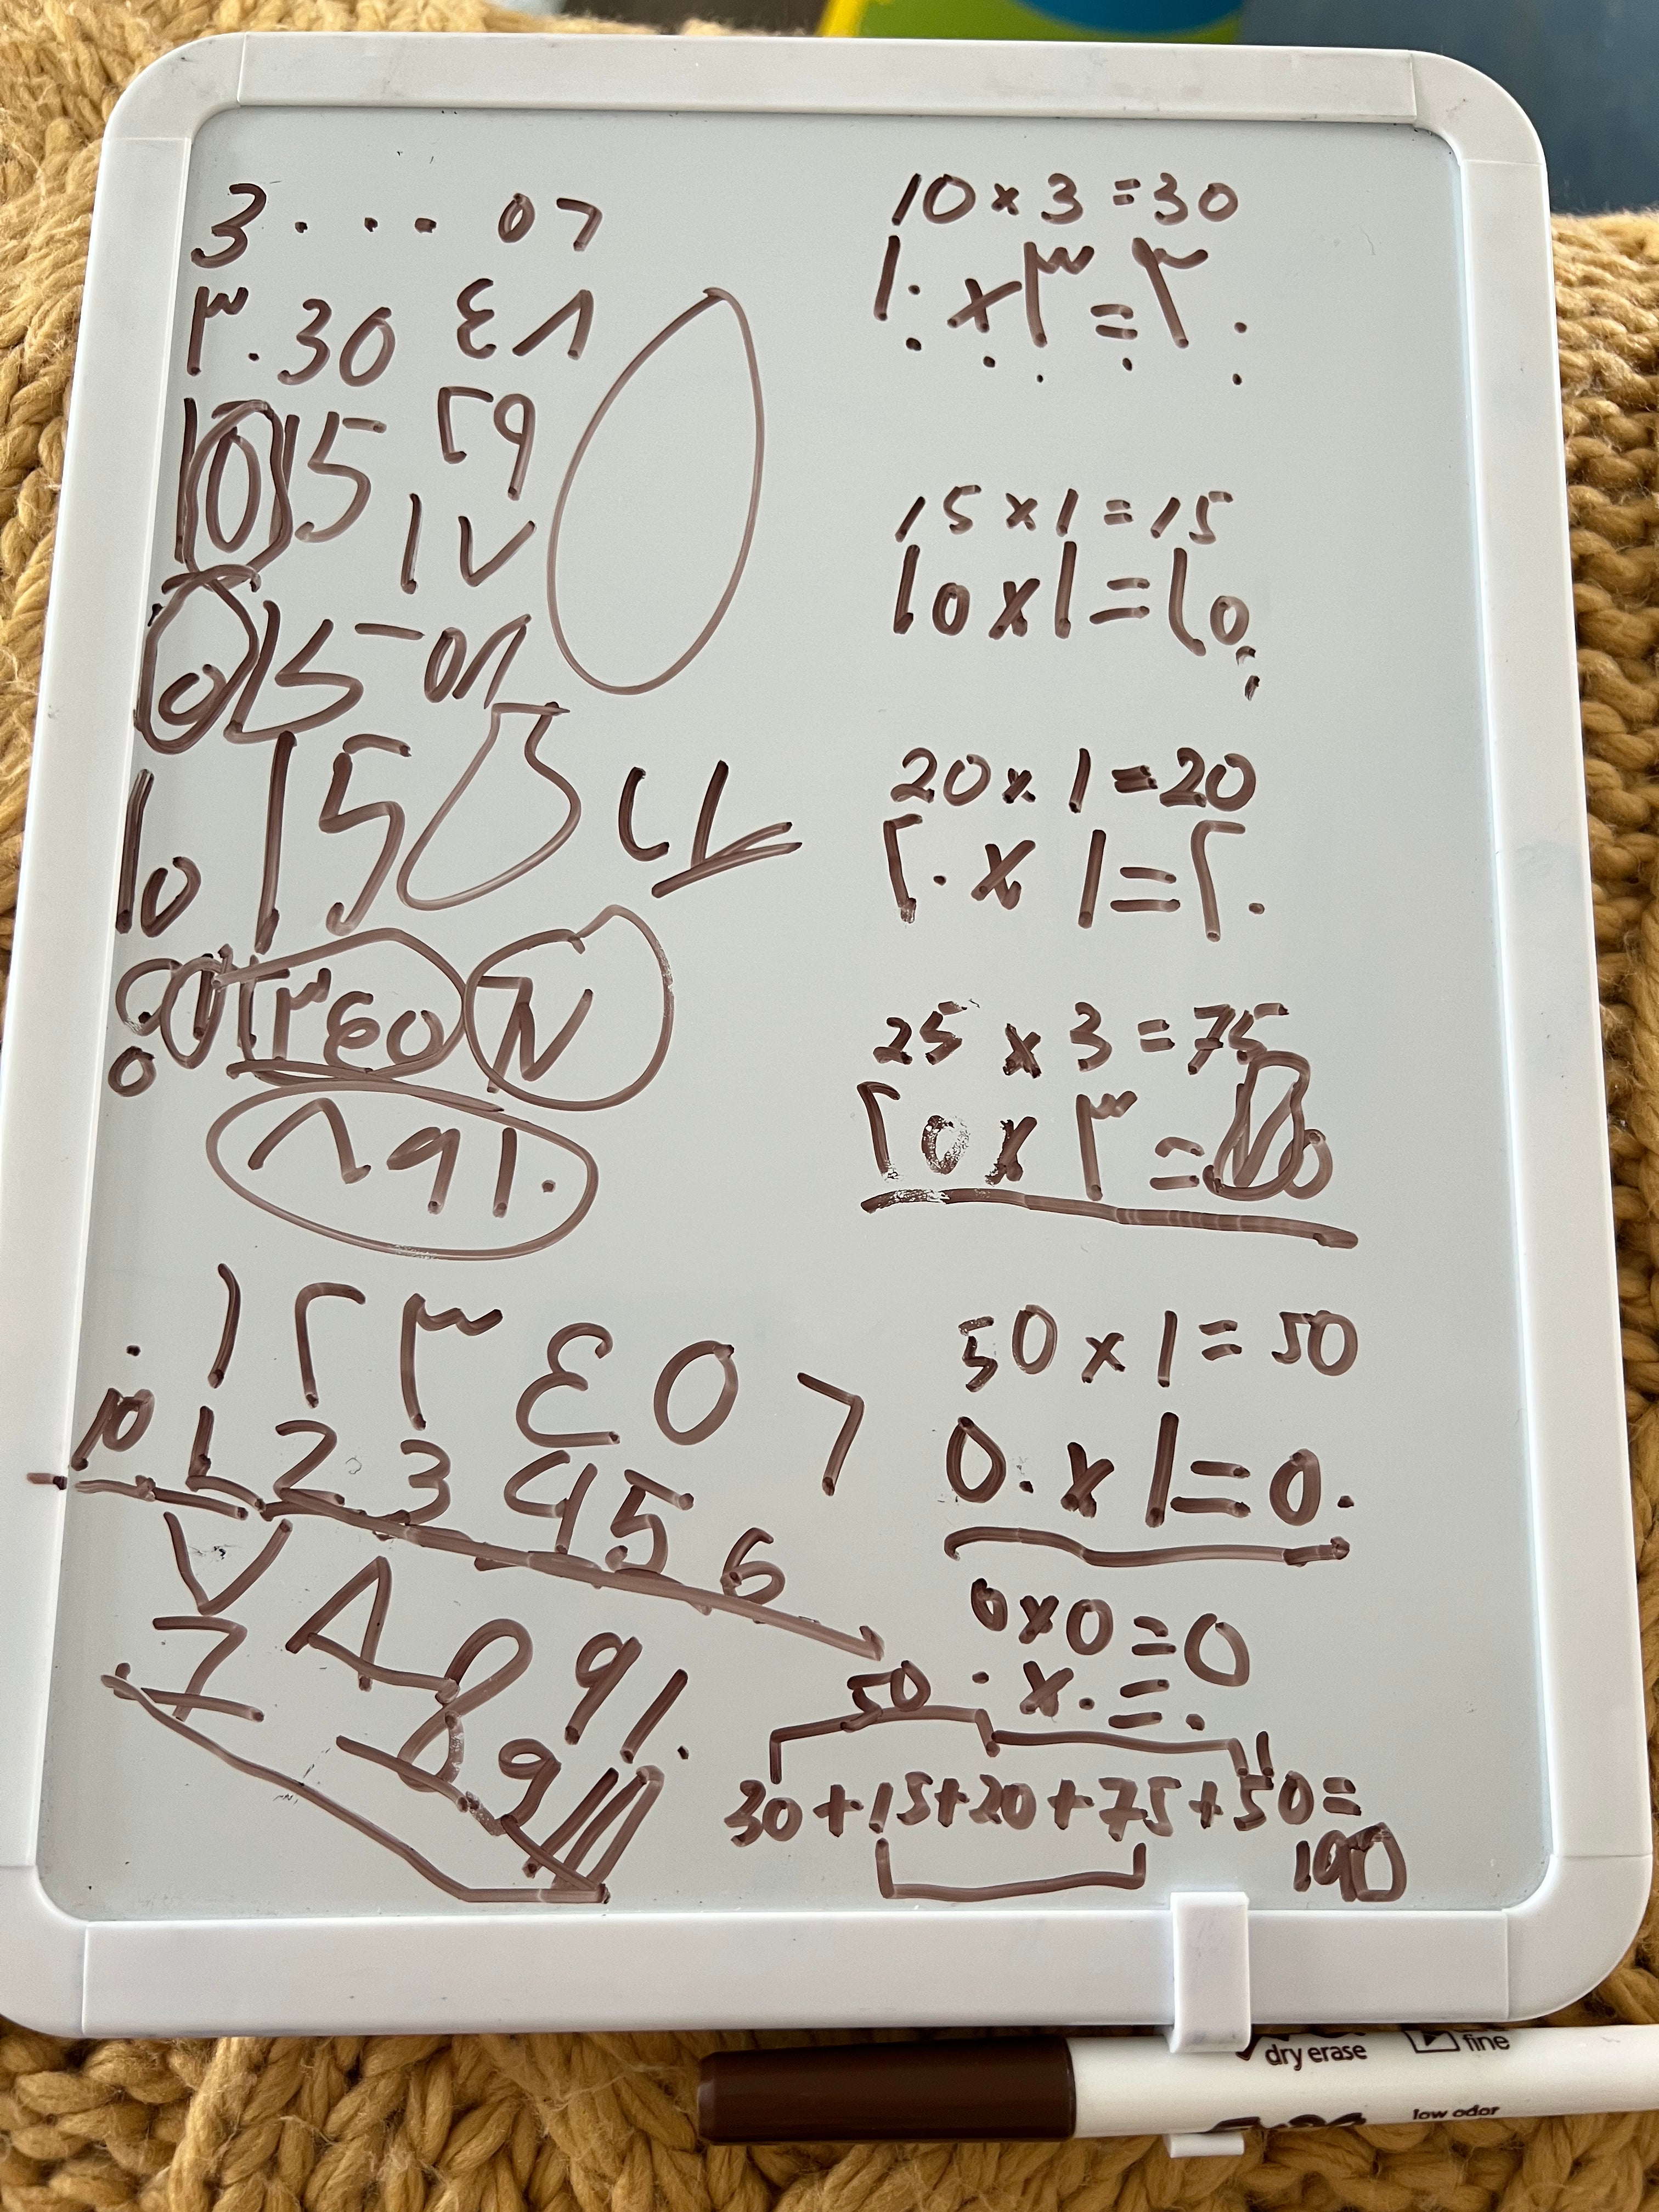 3 . . . ٥٦
٣٠ 30 ٤٨
10 15 ٢٩
١٧
15 ٥٨
10 15
١٢٣٤٥٦ ٧
٨٩١٠
٠ ١ ٢ ٣ ٤ ٥ ٦
0 1 2 3 4 5 6
٧ ٨ ٩ ١٠
7 8 9 10
10 x 3 = 30
١٠ x ٣ = ٣٠
15 x 1 = 15
١٥ x ١ = ١٥
20 x 1 = 20
٢٠ x ١ = ٢٠
25 x 3 = 75
٢٥ x ٣ = ٧٥
50 x 1 = 50
٥٠ x ١ = ٥٠
0 x 0 = 0
٠ x ٠ = ٠
50
30 + 15 + 20 + 75 + 50 =
190
dry erase fine
low odor